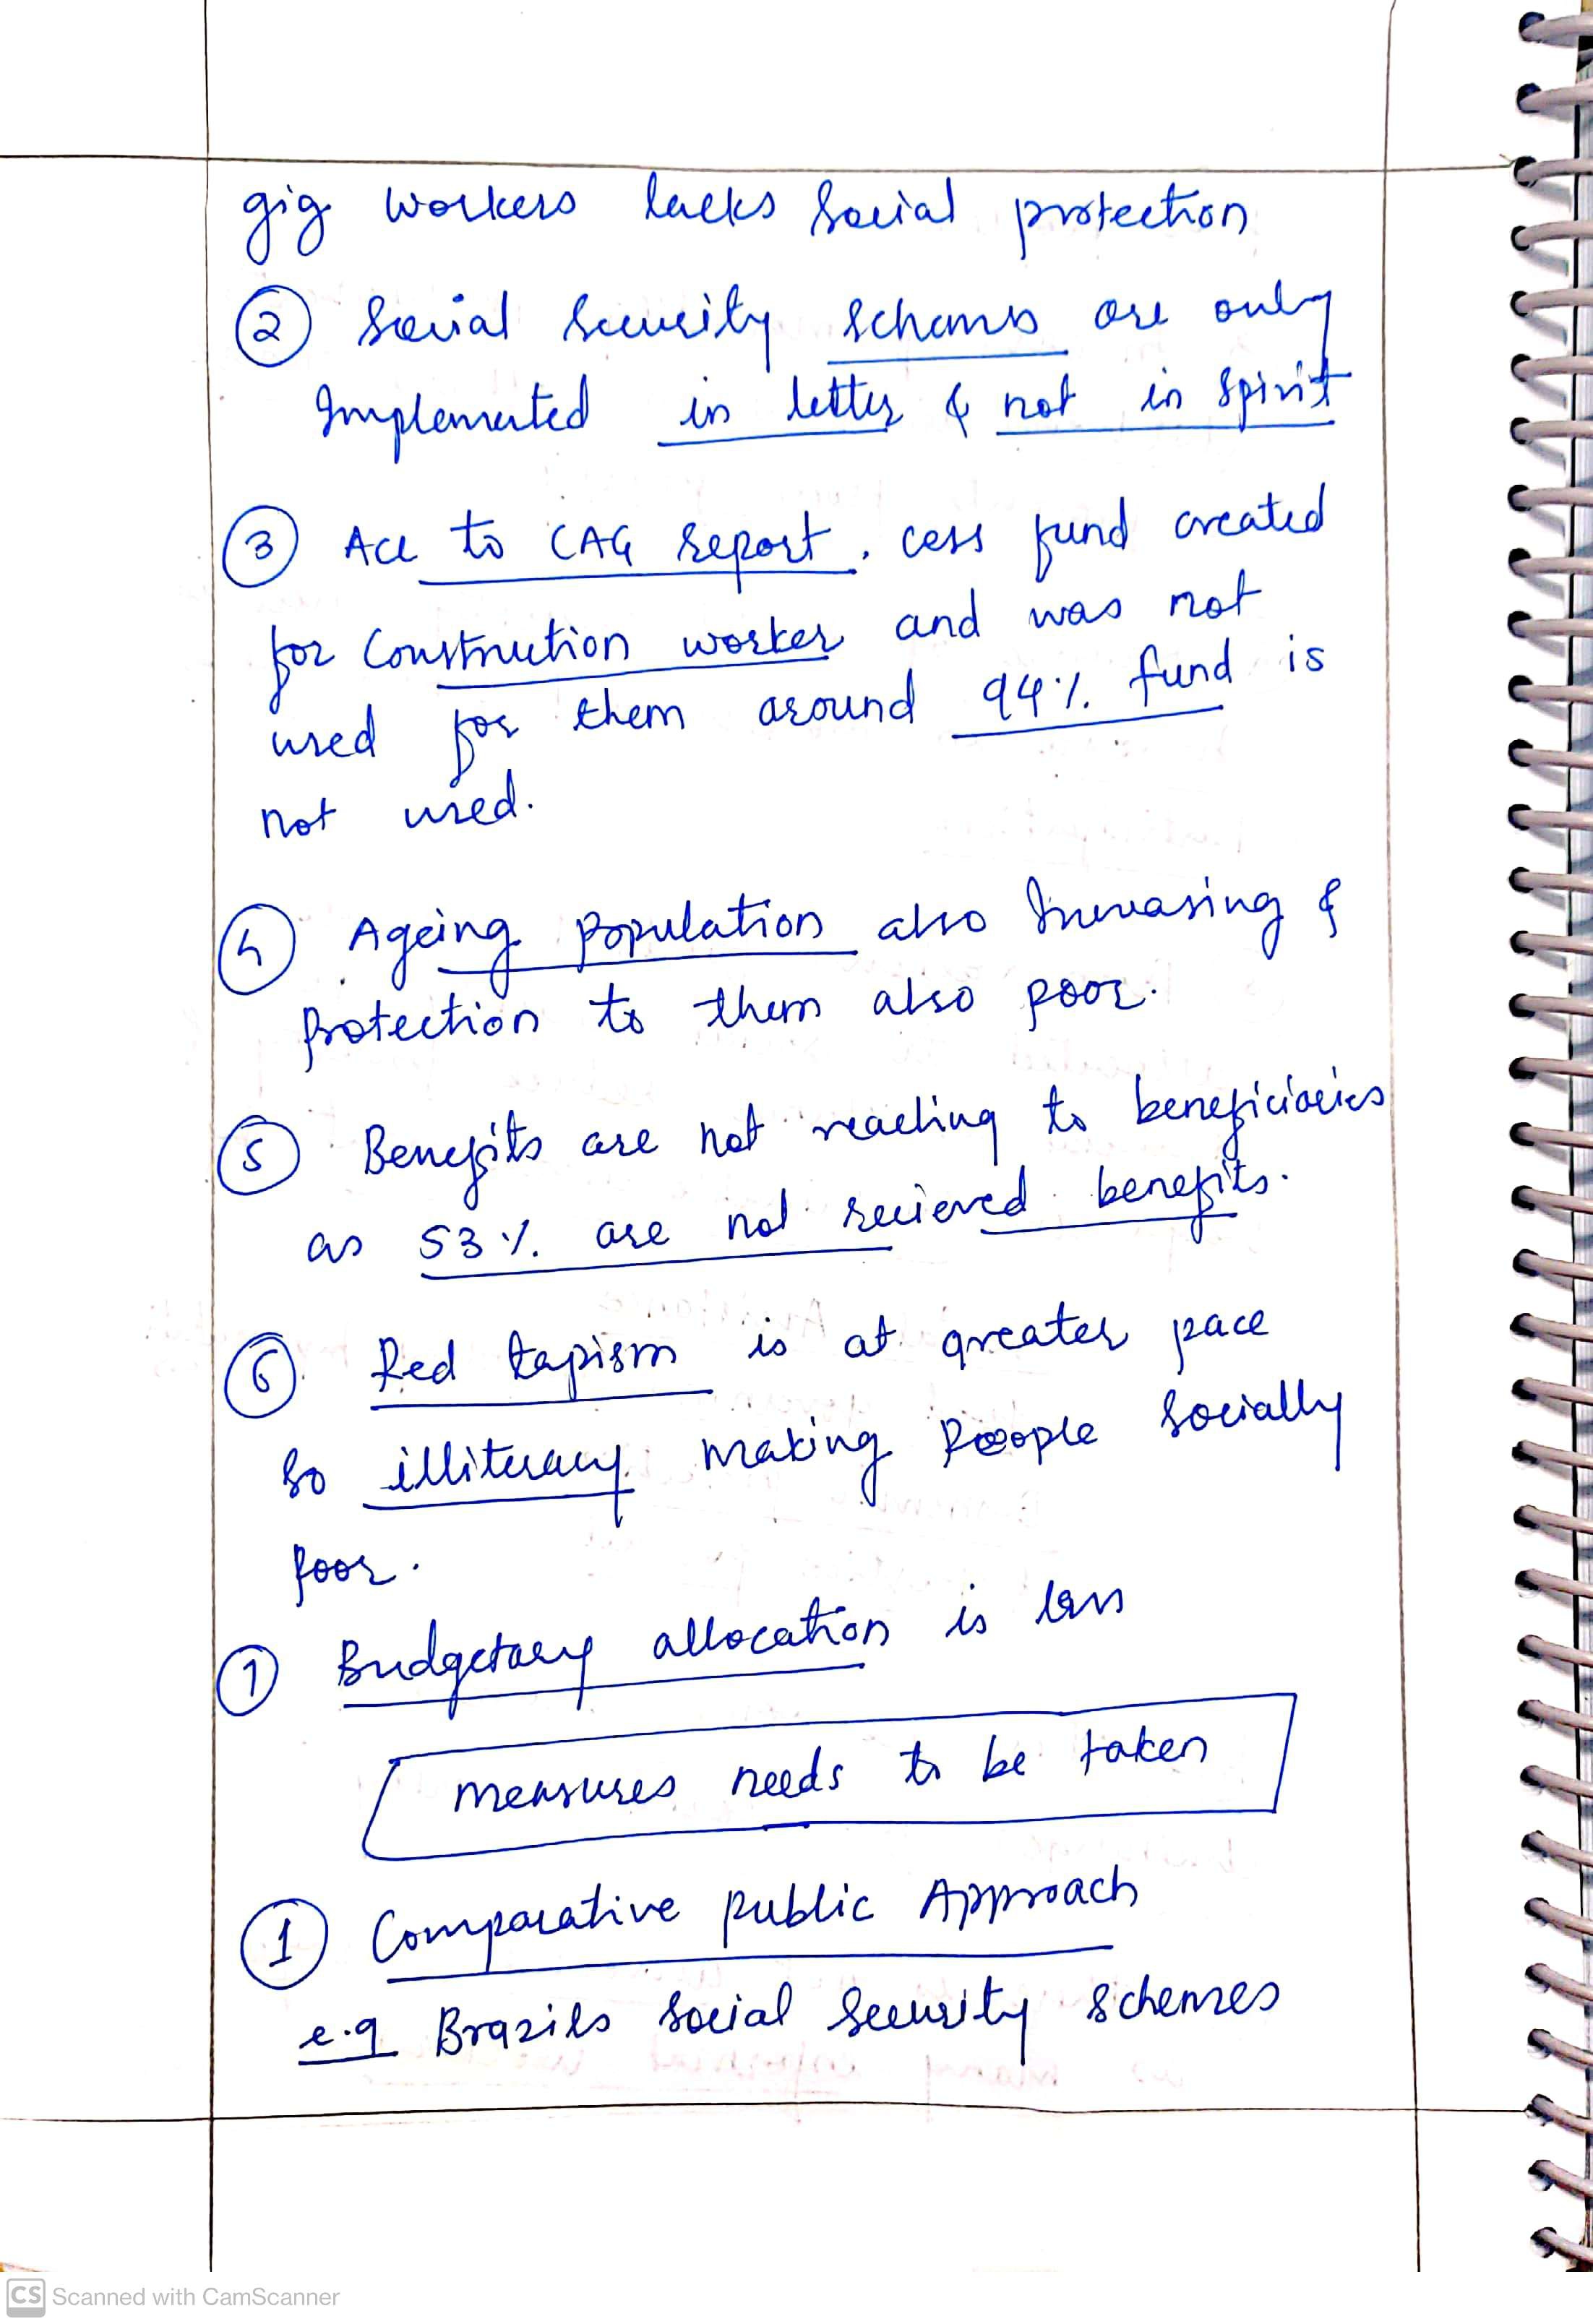 gig workers lacks social protection
② Social Security schems are only
Implemented in letter & not in spirit
③ Acc to CAG report, cess fund created
for Construction worker and was not
used for them around 94% fund is
not used.
④ Ageing population also Increasing &
protection to them also poor.
⑤ Benefits are not reaching to beneficiaries
as 53% are not recieved benefits.
⑥ Red tapism is at greater pace
so illiteracy making people socially
poor.
⑦ Budgetary allocation is less
measures needs to be taken
① Comparative public Approach
e.g Brazils social security schemes
CS Scanned with CamScanner